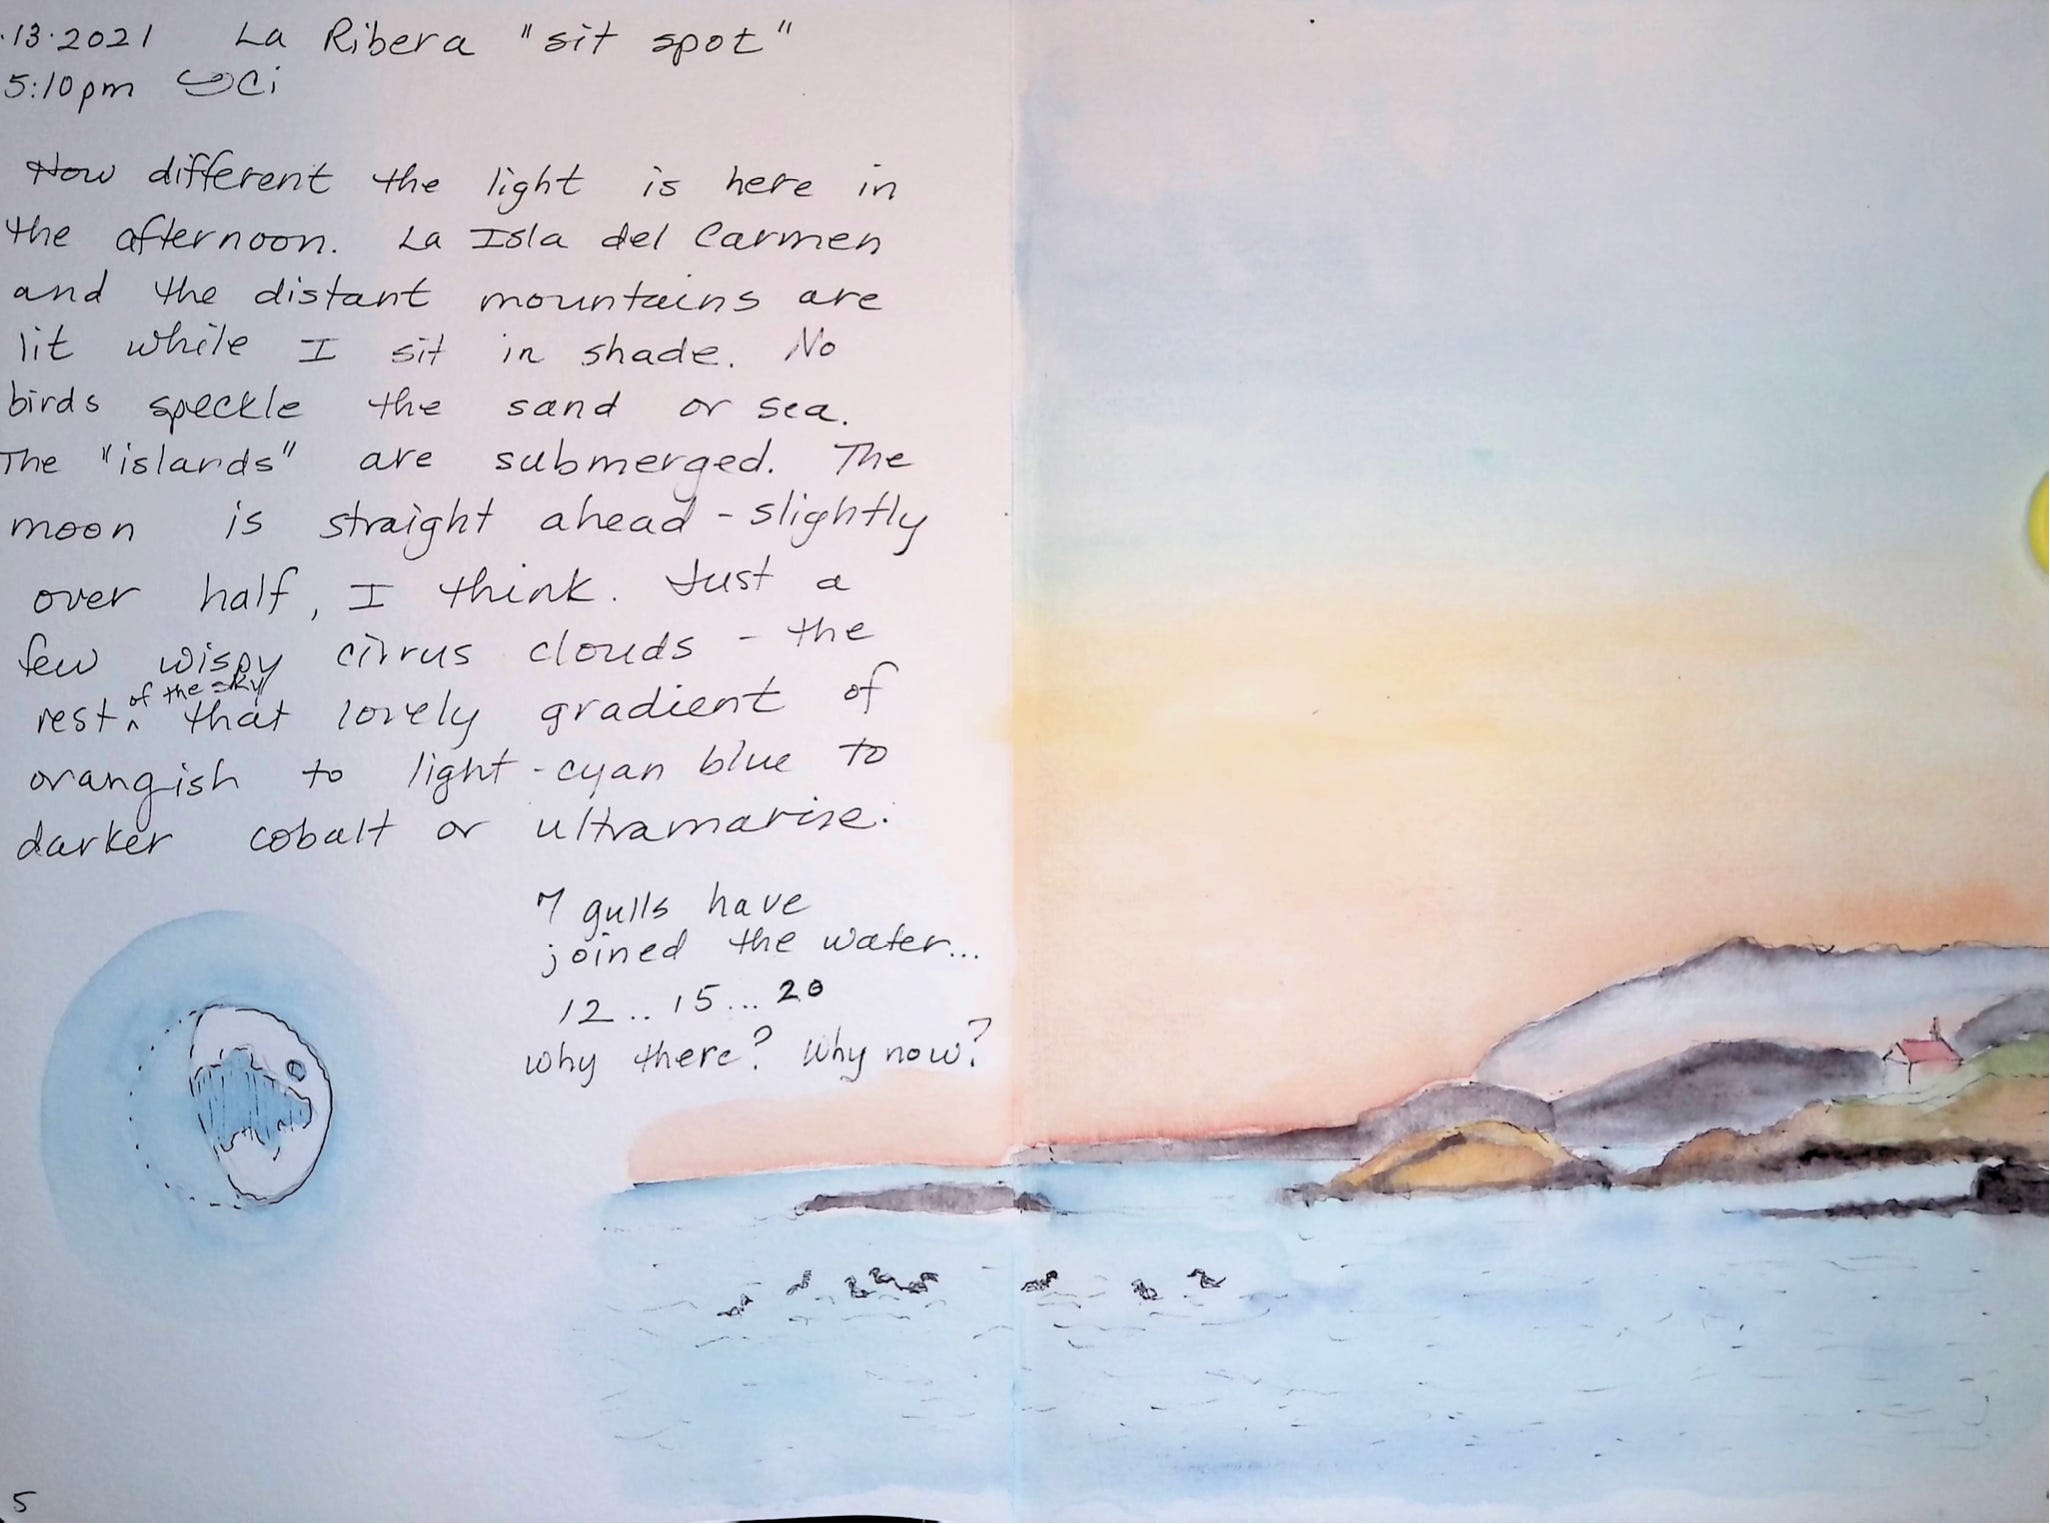 ·13·2021 La Ribera "sit spot"
5:10pm Ci
How different the light is here in
the afternoon. La Isla del Carmen
and the distant mountains are
lit while I sit in shade. No
birds speckle the sand or sea.
The "islands" are submerged. The
moon is straight ahead - slightly
over half, I think. Just a
few wispy cirrus clouds - the
rest of the sky that lovely gradient of
orangish to light-cyan blue to
darker cobalt or ultramarine.
7 gulls have
joined the water...
12.. 15... 20
why there? Why now?
5